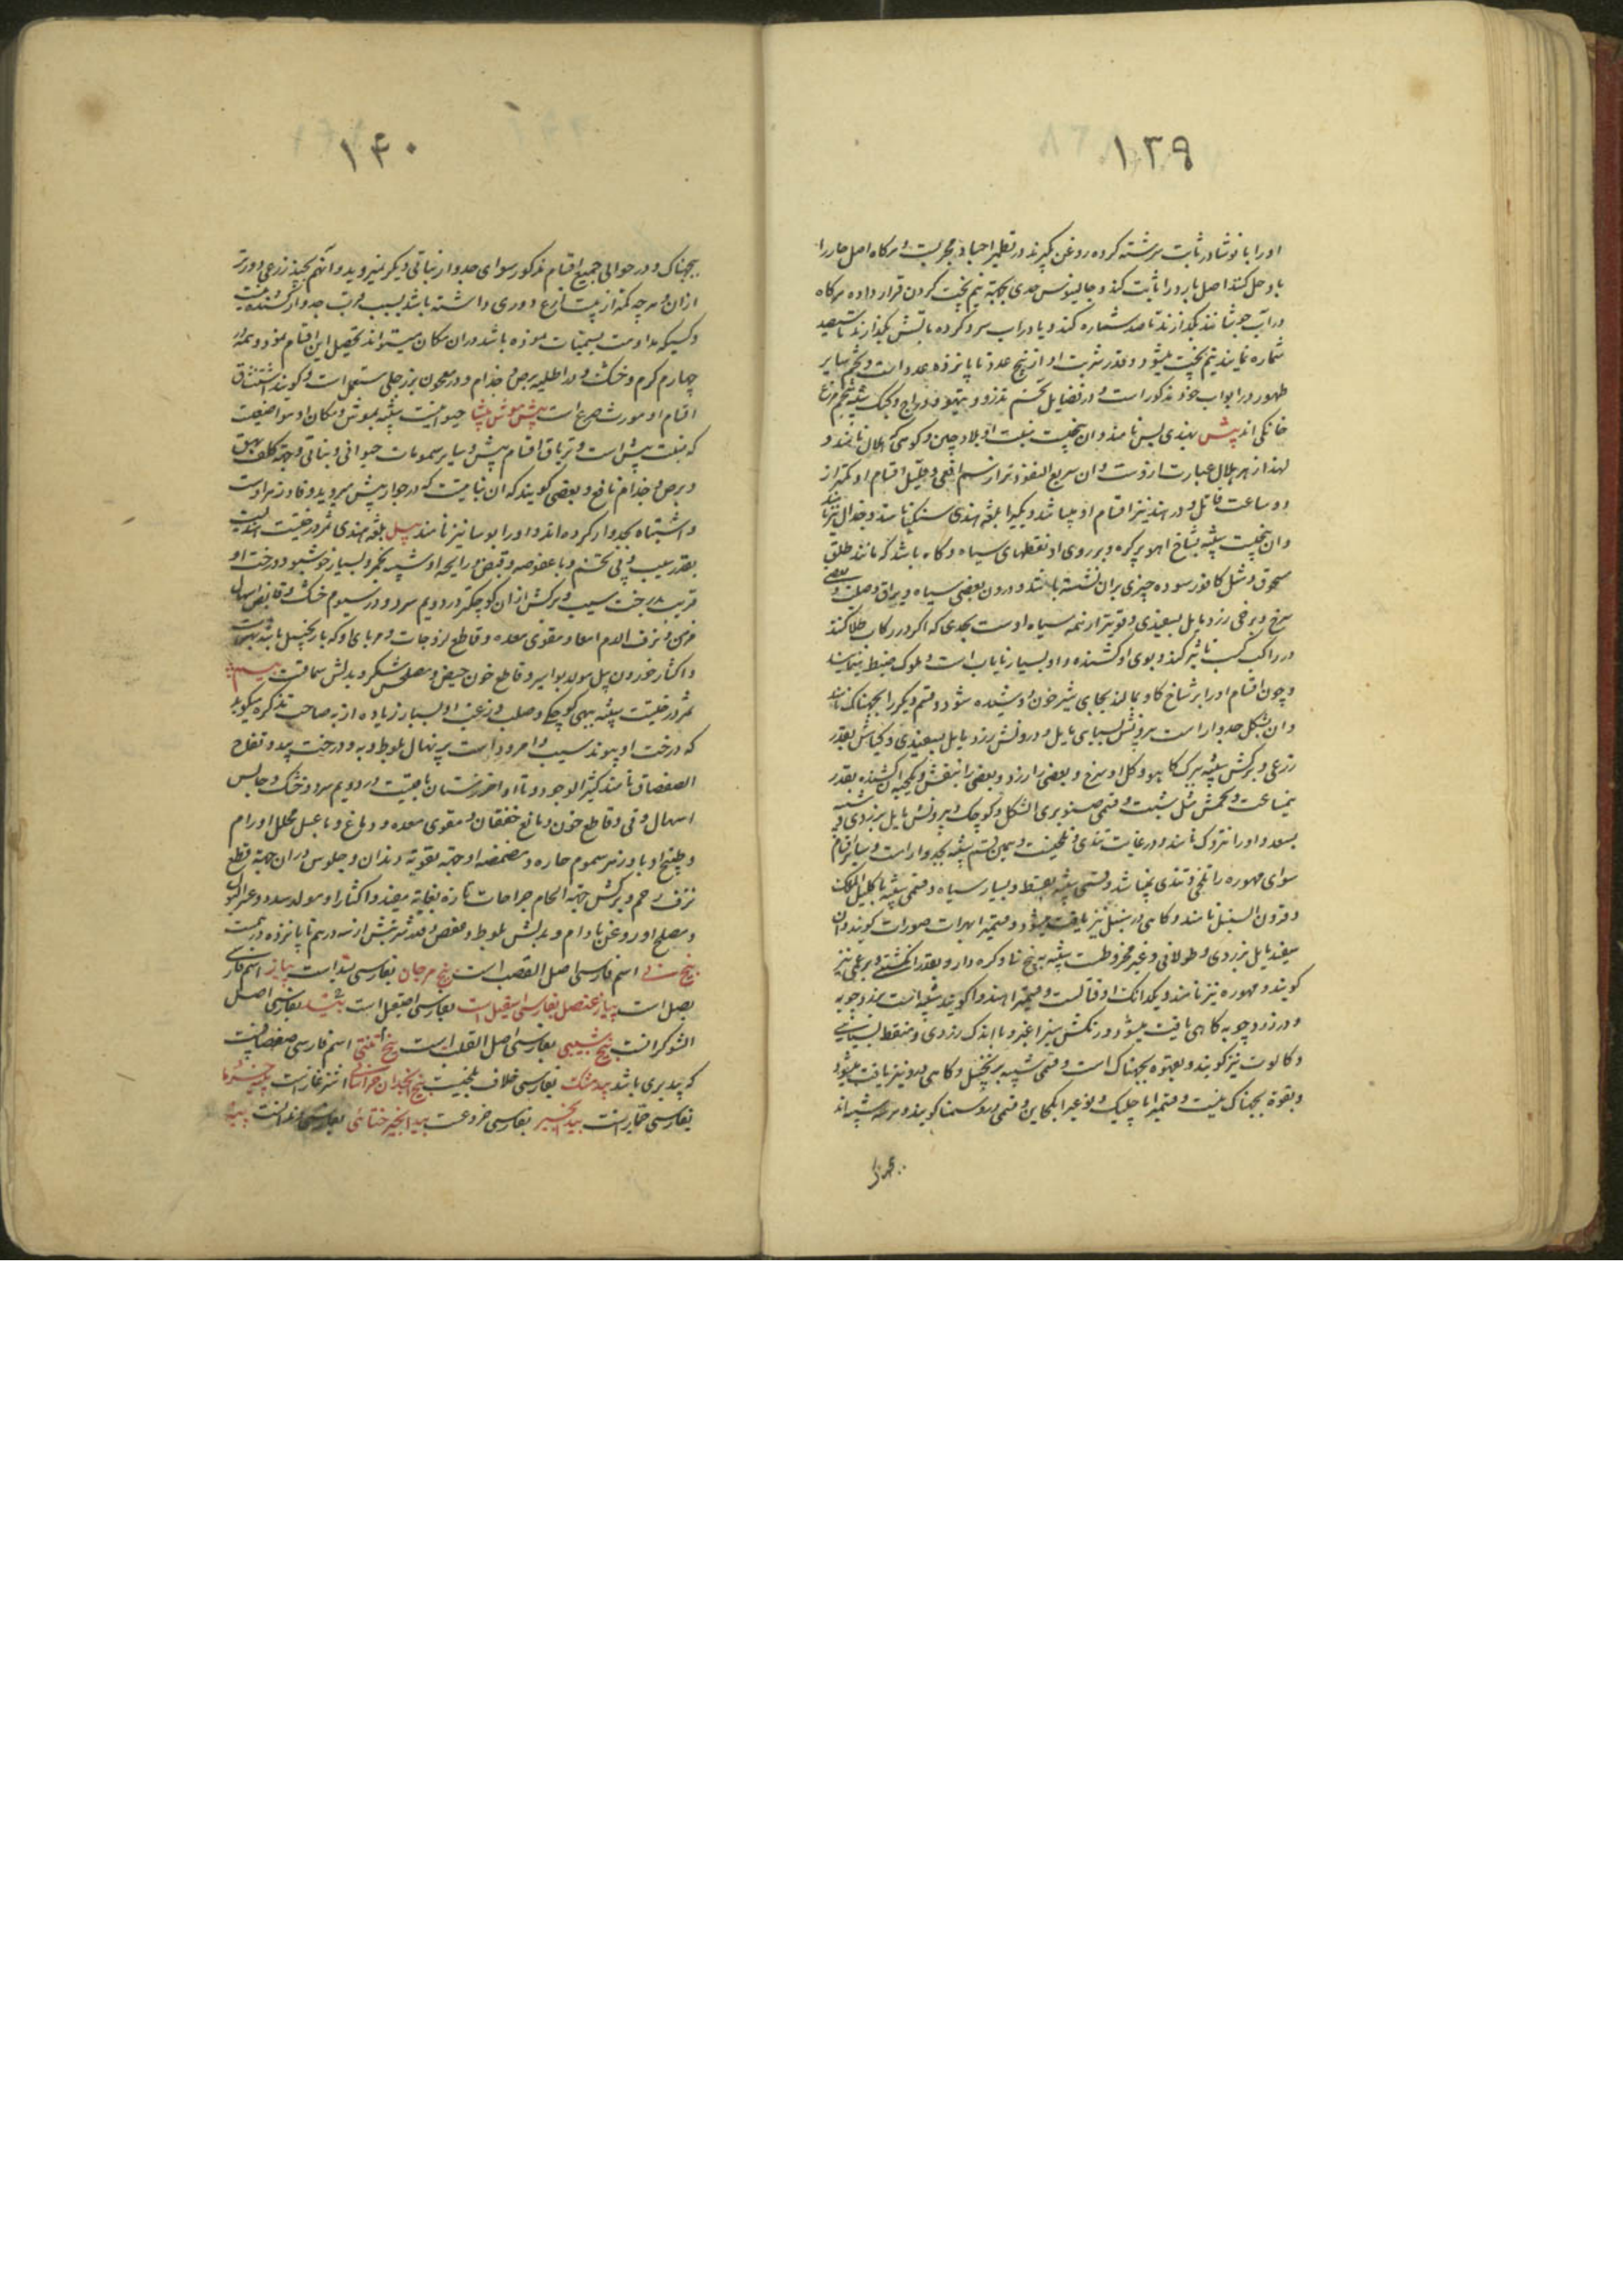 ١٣٩
اورا با نوشادر ثابت سرشته کرده روغن بکیرند در تطهیر اجساد مجربست و هرکاه اصل حار را
باو حل کنند اصل بارد را ثابت کند و جالینوس حدی بجهة نیم پخت کردن قرار داده هرکاه
در آب جوشانند بکذارند تا صد شماره کنند و یا در آب سرد کرده باتش بکذارند تا سیصد
شماره نمایند نیم پخت میشود و قدر شربت او از پنج عدد تا پانزده عدد است و تخم سایر
طیور در ابواب خود مذکور است و در فضایل تخم تذرو و تیهو و دراج و کبک شبیه بتخم مرغ
خانکی اند پیش بهندی بس نامند و آن بیخیست منبت او بلاد چین و کوهی که هلال نامند و
لهذا زهر هلال عبارت ازوست و آن سریع النفوذتر از سم افعی و قلیل اقسام او کمتر از
دو ساعت قاتل و در هند نیز اقسام او میباشد و یکیرا بلغة هندی سنکیا نامند و جدال نیز نامند
و آن بیخیست شبیه بشاخ اهو پر کره و بر روی او نقطهای سیاه و کاه باشد که مانند طلق
مسحوق و مثل کافور سوده چیزی بران نشسته باشد و درون بعضی سیاه و براق و صلب و بعضی
سرخ و برخی زرد مایل بسفیدی و قویتر از همه سیاه اوست بحدی که اکر در رکاب طلا کنند
در راکب تاثیر کند و بوی او کشنده و او بسیار نایاب است و ملوک ضبط مینمایند
و چون اقسام او را بر شاخ کاو بمالند بجای شیر خون دوشیده شود و قسم دیکر را بجهناک نامند
و آن بشکل جدوار است بیرونش بسیاهی مایل و درونش زرد مایل بسفیدی و کیاهش بقدر
زرعی و برکش شبیه ببرک کاهو و کل او سرخ و بعضی را زرد و بعضی را بنفش و یکحبه آن کشنده بقدر
نیمساعت و تخمش مثل شبت و قسمی صنوبری الشکل و کوچک و بیرونش مایل بزردی و شبیه
بسعد و او را نتروک نامند و در غایت تندی و تلخیست و همین قسم شبیه بجدوار است و سایر اقسام
سوای مهوره را تلخی و تندی نمیباشد و قسمی شبیه بقسط و بسیار سیاه و قسمی شبیه باکلیل الملک
و قرون السنبل نامند و کاهی در سنبل نیز یافت میشود و قسمیرا بهرات صورات کویند و آن
سفید مایل بزردی و طولانی و غیر مخروطست شبیه به بیخ نی و کره دار و بقدر انکشتی و برغمی نیز
کویند و مهوره نیز نامند و یکدانک او قاتلست و قسمیرا هندوا کویند شبیه است بزردچوبه
و در زردچوبه کاهی یافت میشود و رنکش سبز اغبر و با اندک زردی و منقط بسیاهی
و کالوت نیز کویند و بقوه بجهناک است و قسمی شبیه بزنجبیل و کاهی درو نیز یافت میشود
و بقوة بجهناک نیست و قسمیرا ماچلیک و نوعیرا بکماین و قسمی دروسمنا کویند و هر سه شبیه اند
١۴٠
بجهناک و در حوالی جمیع اقسام مذکور سوای جدوار نباتی دیکر نمیروید و آنهم بچند زرعی دورتر
ازان و هر چه کمتر از بیست زرع دوری داشته باشد بسبب قرب جدوار کشنده نیست
و کسیکه مداومت بسمیات نموده باشد در ان مکان میتواند تحصیل این اقسام نمود و همه در
چهارم کرم و خشک و در اطلیه برص و جذام و در معجون بزرجلی مستعمل است و کویند استنشاق
اقسام او مورث صرع است پیش موش بیشا حیوانیست شبیه بموش و مکان او مواضعیست
که منبت بیش است و تریاق اقسام بیش و سایر سمومات حیوانی و نباتی و جهة کلف و بهق
و برص و جذام نافع و بعضی کویند که ان نباتیست که در جوار بیش میروید و فادزهر اوست
و اشتباه بجدوار کرده اند و او را بوسا نیز نامند بیل بلغة هندی ثمر درختیست
بقدر سیب و بی تخم و با عفوصه و قبض و رایحه او شبیه بخمر و بسیار خوشبو و درخت او
قریب بدرخت سیب و برکش ازان کوچکتر در دویم سرد و در سیوم خشک و قابض اسهال
مزمن و نزف الدم امعا و مقوی معده و قاطع لزوجات و مربای او که با زنجبیل باشد
و اکثار خوردن بیل مولد بواسیر و قاطع خون حیض و مصلحش شکر و بدلش سماقست
ثمر درختیست شبیه ببهی کوچکی و صلب و زغب او بسیار زیاده از به صاحب تذکره میکوید
که درخت او پیوند سیب و امرود است بر نهال بلوط و به و درخت بید و تفاح
الصفصاف نامند کثیر الوجود و تا اواخر زمستان باقیست در دویم سرد و خشک و حابس
اسهال و قی و قاطع خون و مانع خفقان و مقوی معده و دماغ و با عسل محلل اورام
و طبیخ او با دزهر سموم حاره و مضمضه او جهة تقویة دندان و جلوس دران جهة قطع
نزف رحم و برکش جهة الحام جراحات تازه بغایة مفید و اکثار او مولد سدد و عسر البول
و مصلح او روغن بادام و بدلش بلوط و عفص و قدر شربتش از سه درهم تا پانزده درهمست
بیخ نی اسم فارسی اصل القصب است بیخ مرجان بفارسی بسد است پیاز اسم فارسی
بصل است پیاز عنصل بفارسی اسقیل است بفارسی اشقیل است بیشد بفارسی اصل
الشوکرانست بیخ شیبی بفارسی اصل القلب است بیخ تلخی اسم فارسی صفصافست
که بید بری باشد بیدمشک بفارسی خلاف بلخیست بیخ انجدان خراسانی اشترغازست
بفارسی خبازیست بیدانجیر بفارسی خروعست بیدانجیر ختائی بفارسی دند است